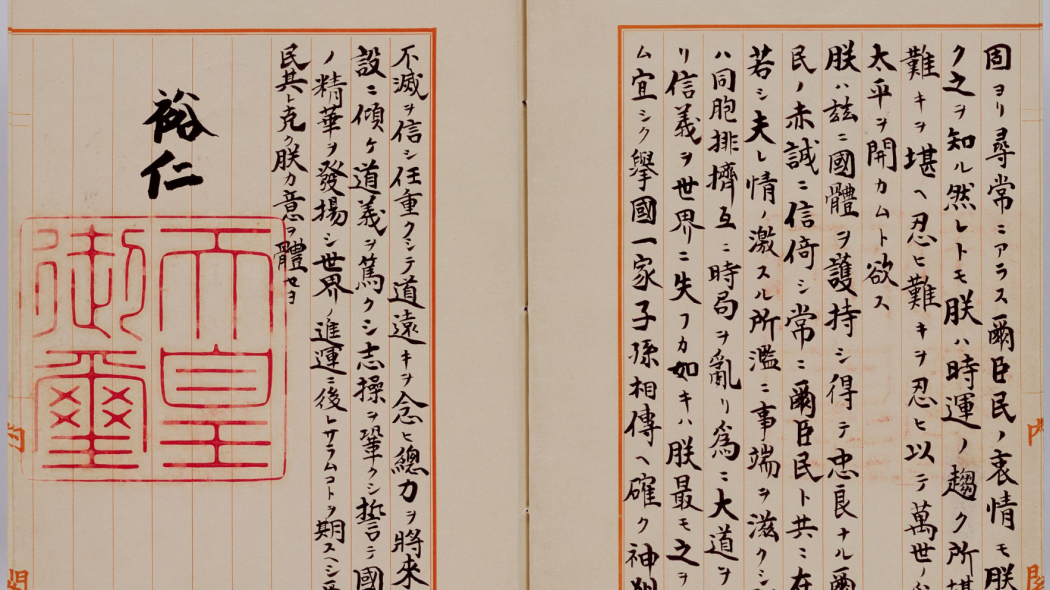 固ヨリ尋常ニアラス爾臣民ノ衷情モ朕
ク之ヲ知ル然レトモ朕ハ時運ノ趨ク所堪
難キヲ堪ヘ忍ヒ難キヲ忍ヒ以テ萬世ノ
太平ヲ開カムト欲ス
朕ハ茲ニ國體ヲ護持シ得テ忠良ナル爾
民ノ赤誠ニ信倚シ常ニ爾臣民ト共ニ在
若シ夫レ情ノ激スル所濫ニ事端ヲ滋クシ
ハ同胞排擠互ニ時局ヲ亂リ爲ニ大道ヲ
リ信義ヲ世界ニ失フカ如キハ朕最モ之ヲ
ム宜シク擧國一家子孫相傳ヘ確ク神
不滅ヲ信シ任重クシテ道遠キヲ念ヒ總力ヲ將來
設ニ傾ケ道義ヲ篤クシ志操ヲ鞏クシ誓テ國
ノ精華ヲ發揚シ世界ノ進運ニ後レサラムコトヲ期スヘシ
民其レ克ク朕カ意ヲ體セヨ
裕仁
天皇
御璽